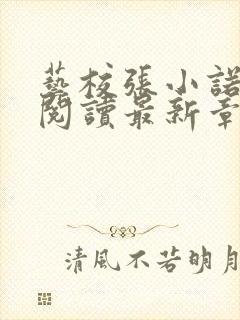 藝校張小諾
閱讀最新章
清風不若明月